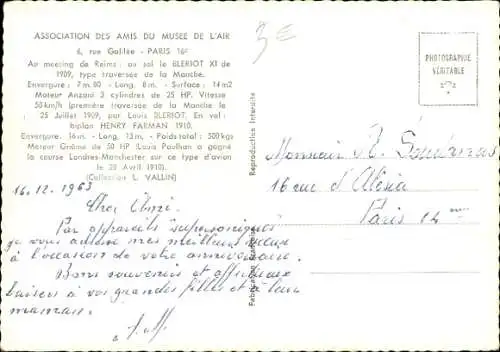 ASSOCIATION DES AMIS DU MUSEE DE L'AIR
6, rue Galilée - PARIS 16e
Au meeting de Reims : au sol le BLERIOT XI de
1909, type traversée de la Manche.
Envergure : 7m.80 - Long. 8m. - Surface : 14m2
Moteur Anzani 3 cylindres de 25 HP. Vitesse
50km/h (première traversée de la Manche le
25 Juillet 1909, par Louis BLERIOT. En vol :
biplan HENRY FARMAN 1910.
Envergure. 16m. - Long. 13m. - Poids total : 500kgs
Moteur Gnôme de 50 HP (Louis Paulhan a gagné
la course Londres-Manchester sur ce type d'avion
le 28 Avril 1910).
(Collection L. VALLIN)
16.12.1963
Cher Ami.
Par appareils supersoniques
je vous adresse mes meilleurs vœux
à l'occasion de votre anniversaire.
Bons souvenirs et affectueux
baisers à vos grandes filles et à leur
maman.
3€
Reproduction Interdite
Fabrication Française
PHOTOGRAPHIE
VÉRITABLE
Monsieur R.
16 rue d'Alésia
Paris 14 me